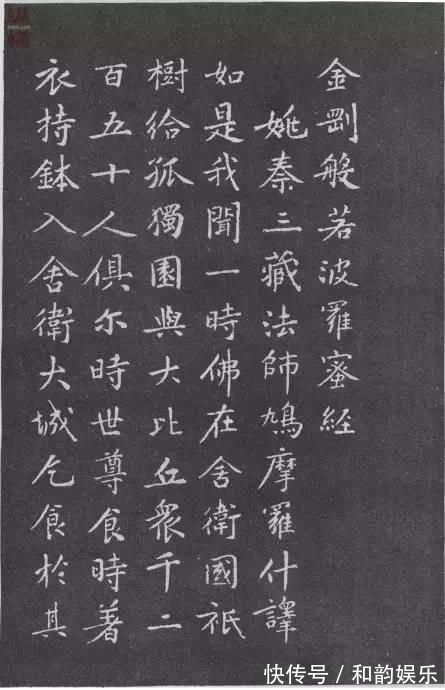 金剛般若波羅蜜經
姚秦三藏法師鳩摩羅什譯
如是我聞一時佛在舍衛國祇
樹給孤獨園與大比丘衆千二
百五十人俱尔時世尊食時著
衣持鉢入舍衛大城乞食於其
快传号／和韵娱乐